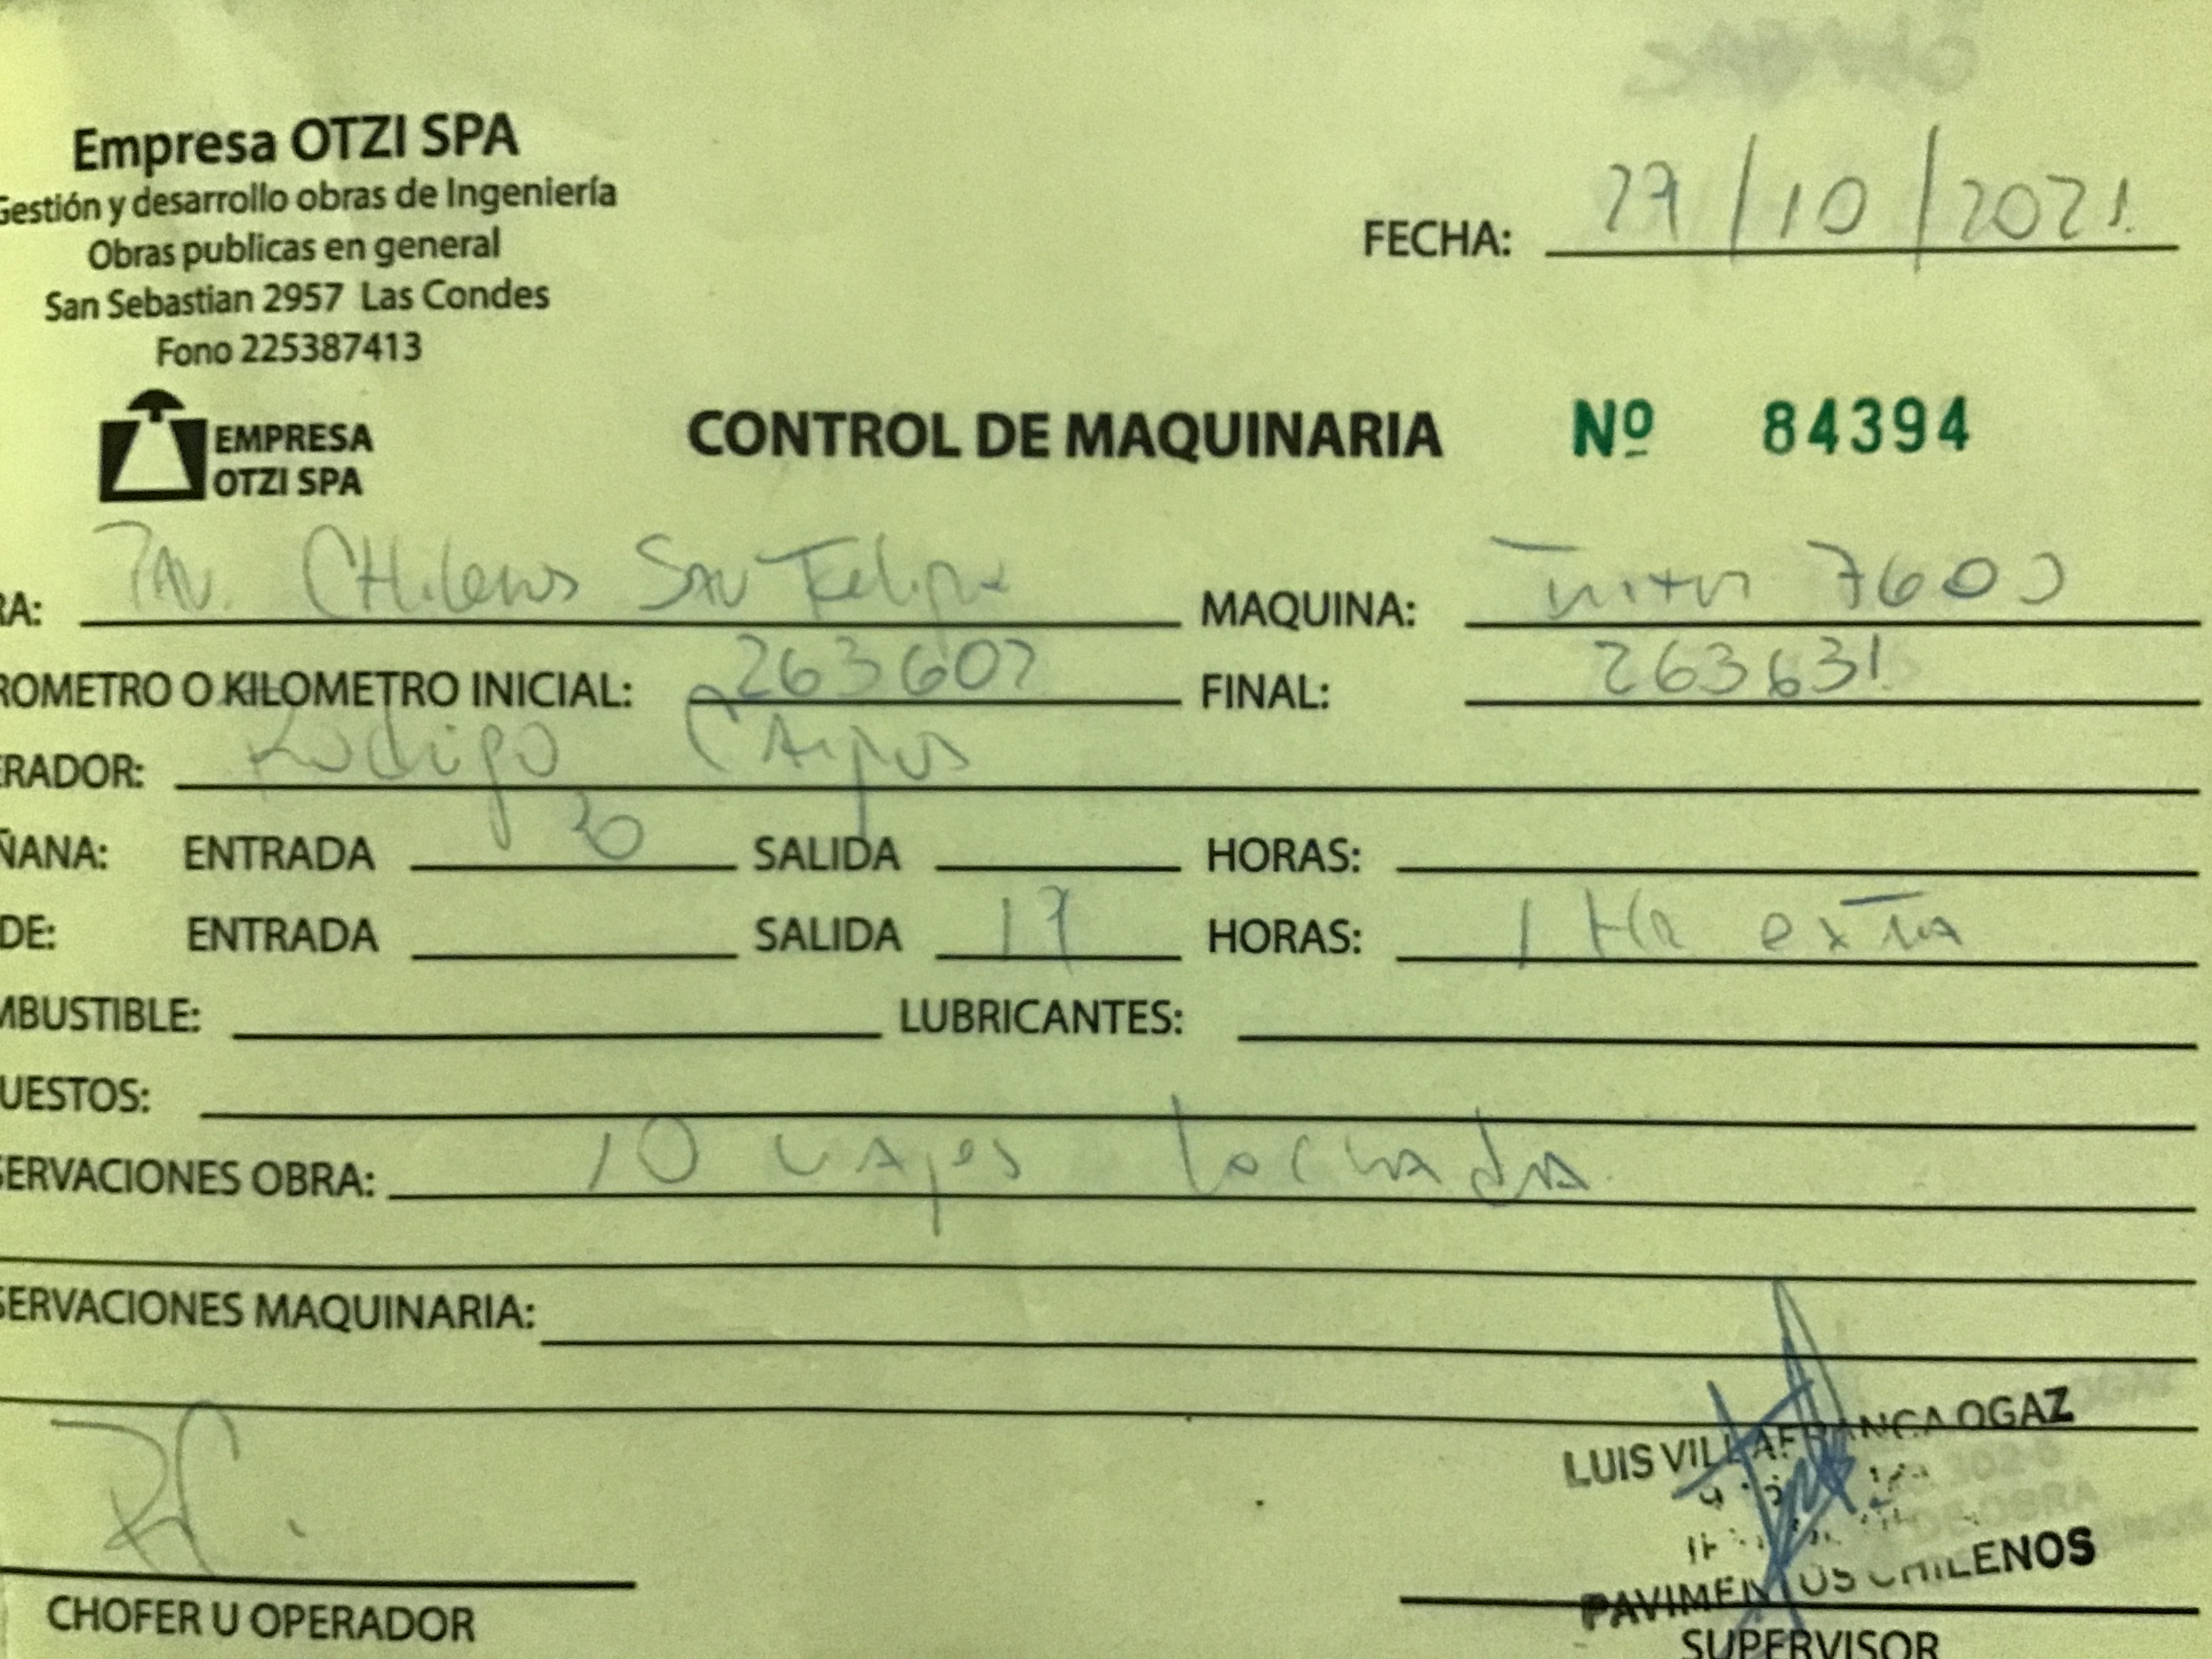 Empresa OTZI SPA
Gestión y desarrollo obras de Ingeniería
Obras publicas en general
San Sebastian 2957 Las Condes
Fono 225387413
FECHA: 27/10/2021
EMPRESA
OTZI SPA
CONTROL DE MAQUINARIA Nº 84394
RA: Pav. CHilenos San Felipe MAQUINA: Inter 7600
ROMETRO O KILOMETRO INICIAL: 263607 FINAL: 263631
ERADOR: Rodrigo Campos
ÑANA: ENTRADA SALIDA HORAS:
DE: ENTRADA SALIDA 17 HORAS: 1 Hr extra
MBUSTIBLE: LUBRICANTES:
UESTOS:
SERVACIONES OBRA: 10 viajes lechada
SERVACIONES MAQUINARIA:
LUIS VILLAFRANCA OGAZ
PAVIMENTOS CHILENOS
CHOFER U OPERADOR
SUPERVISOR